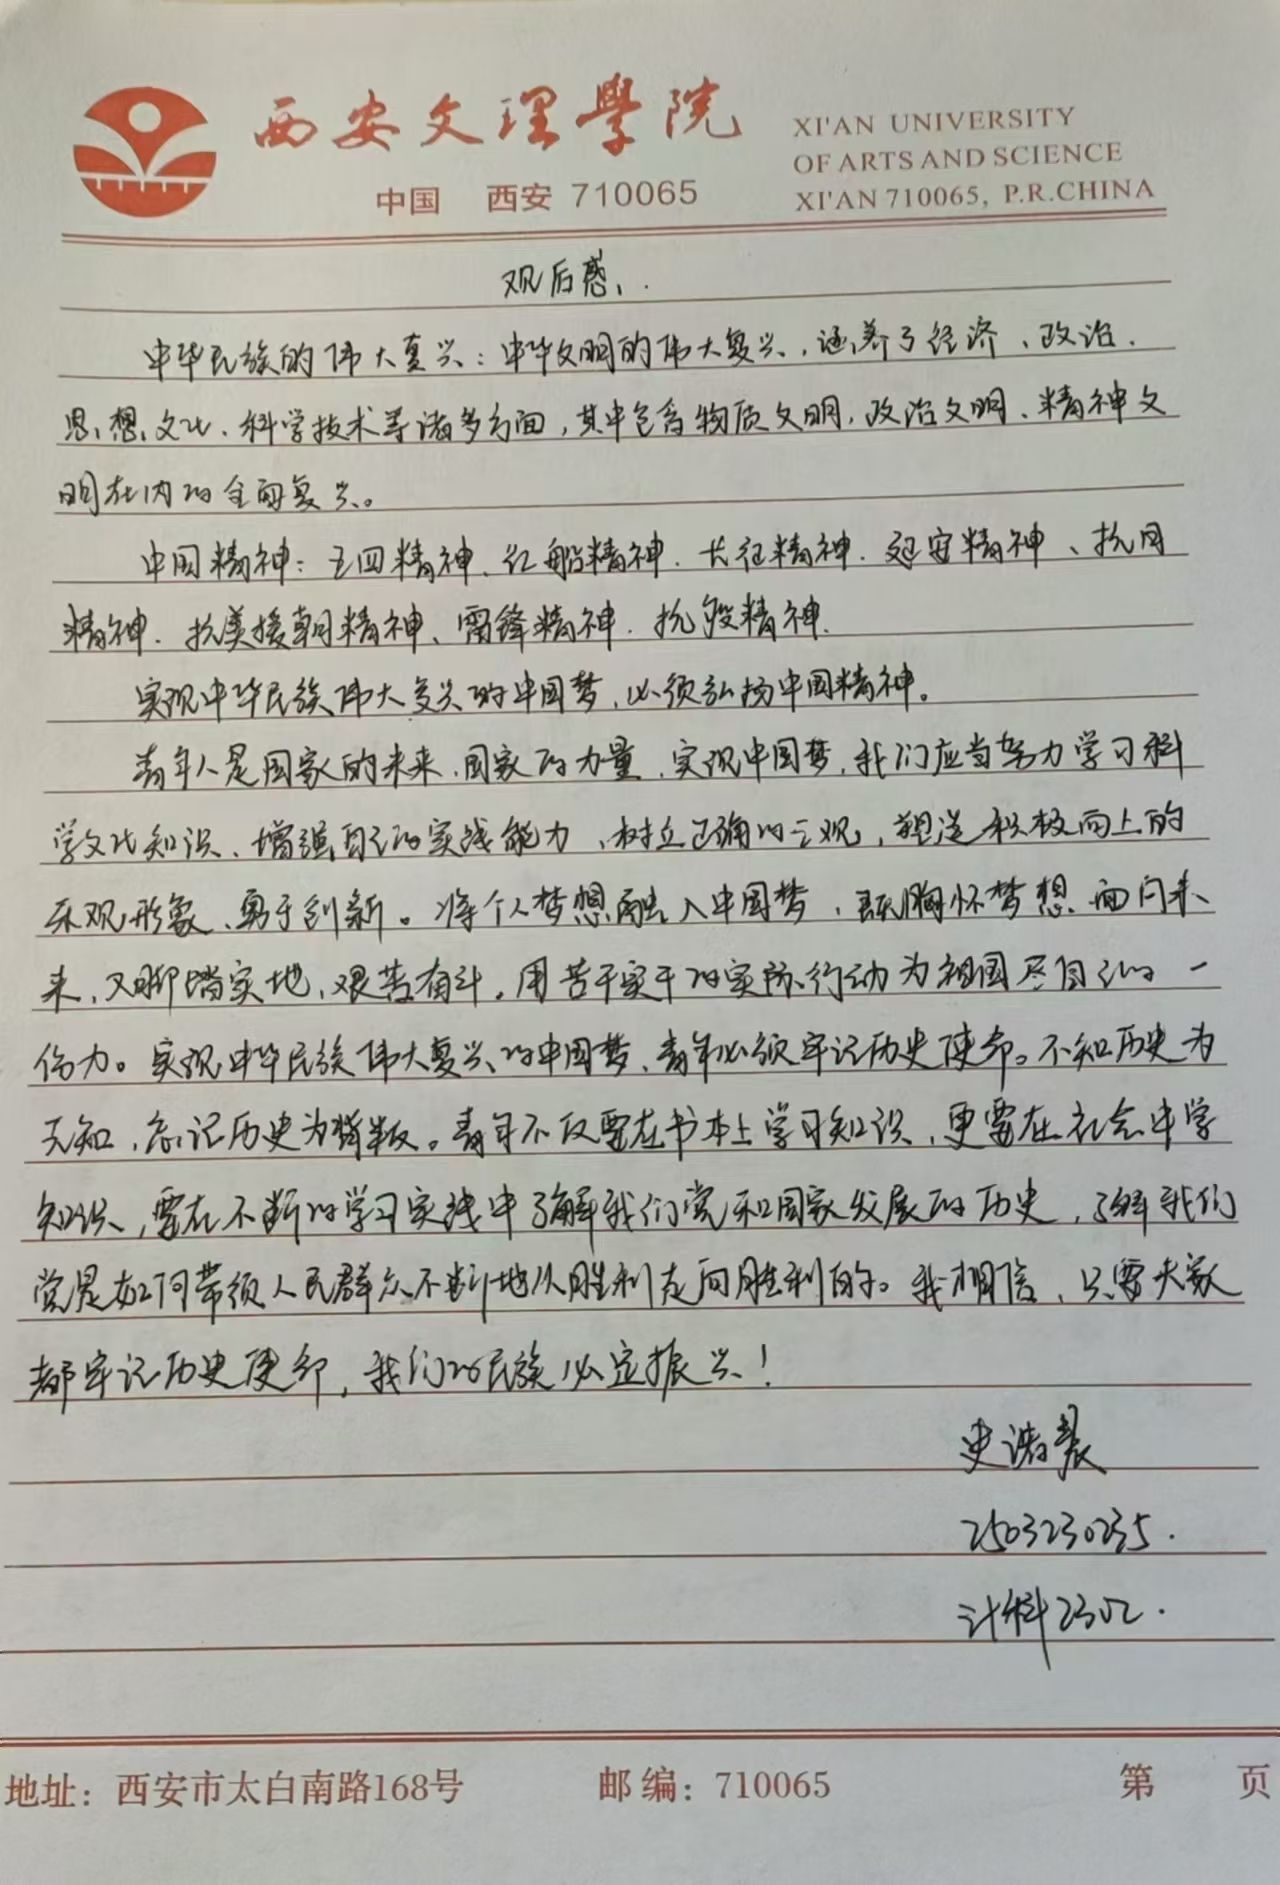 西安文理學院
中国 西安 710065
XI'AN UNIVERSITY
OF ARTS AND SCIENCE
XI'AN 710065, P.R.CHINA
观后感
中华民族的伟大复兴:中华文明的伟大复兴,涵养了经济、政治、
思想、文化、科学技术等诸多方面,其中包含物质文明,政治文明、精神文
明在内的全面复兴。
中国精神:五四精神、红船精神、长征精神、延安精神、抗日
精神、抗美援朝精神、雷锋精神、抗疫精神.
实现中华民族伟大复兴的中国梦,必须弘扬中国精神。
青年人是国家的未来,国家的力量,实现中国梦,我们应当努力学习科
学文化知识、增强自己的实践能力、树立正确的三观,塑造积极向上的
乐观形象、勇于创新。将个人梦想融入中国梦,既胸怀梦想、面向未
来,又脚踏实地、艰苦奋斗,用苦干实干的实际行动为祖国尽自己的一
份力。实现中华民族伟大复兴的中国梦、青年必须牢记历史使命。不知历史为
无知,忘记历史为背叛。青年不仅要在书本上学习知识,更要在社会中学
知识,要在不断的学习实践中了解我们党和国家发展的历史,了解我们
党是如何带领人民群众不断地从胜利走向胜利的。我相信,只要大家
都牢记历史使命,我们的民族必定振兴!
史
2503230235.
计科2302.
地址:西安市太白南路168号 邮编:710065 第 页